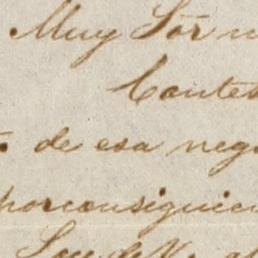 Muy Sōr n
Contes
. de esa neg
porconsiguien